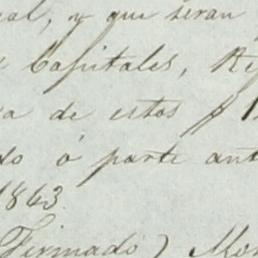 al, y que seran
Capitales, Re
a de estos p
do ó parte ant
1863.
(Firmado) Mo